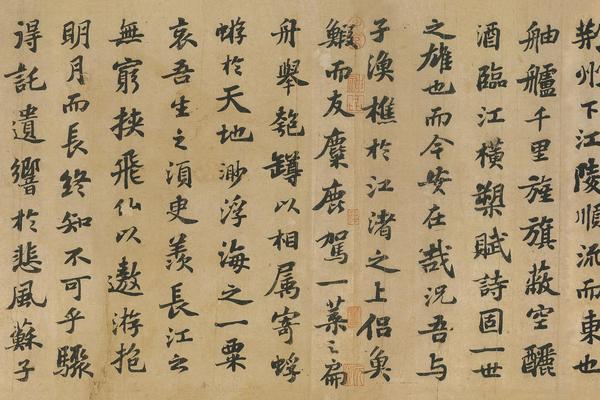 荆州下江陵順流而東也
舳艫千里旌旗蔽空釃
酒臨江橫槊賦詩固一世
之雄也而今安在哉況吾與
子漁樵於江渚之上侶魚
鰕而友麋鹿駕一葉之扁
舟舉匏罇以相属寄蜉
蝣於天地渺浮海之一粟
哀吾生之須臾羨長江之
無窮挾飛仙以遨游抱
明月而長終知不可乎驟
得託遺響於悲風蘇子